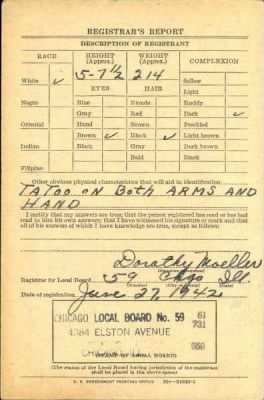 REGISTRAR'S REPORT
DESCRIPTION OF REGISTRANT
RACE HEIGHT (Approx.) WEIGHT (Approx.) COMPLEXION
White ✓ 5-7½ 214 Sallow
EYES HAIR Light
Negro Blue Blonde Ruddy
Gray Red Dark ✓
Oriental Hazel Brown Freckled
Brown ✓ Black ✓ Light brown
Indian Black Gray Dark brown
Bald Black
Filipino
Other obvious physical characteristics that will aid in identification
TATOO ON BOTH ARMS AND
HAND
I certify that my answers are true; that the person registered has read or has had
read to him his own answers; that I have witnessed his signature or mark and that
all of his answers of which I have knowledge are true, except as follows:
Dorothy Moeller
Registrar for Local Board 59 Chgo Ill.
(Number) (City or county) (State)
Date of registration June 27, 1942
CHICAGO LOCAL BOARD No. 59 61
731
4984 ELSTON AVENUE
(STAMP OF LOCAL BOARD)
(The stamp of the Local Board having jurisdiction of the registrant
shall be placed in the above space)
U. S. GOVERNMENT PRINTING OFFICE